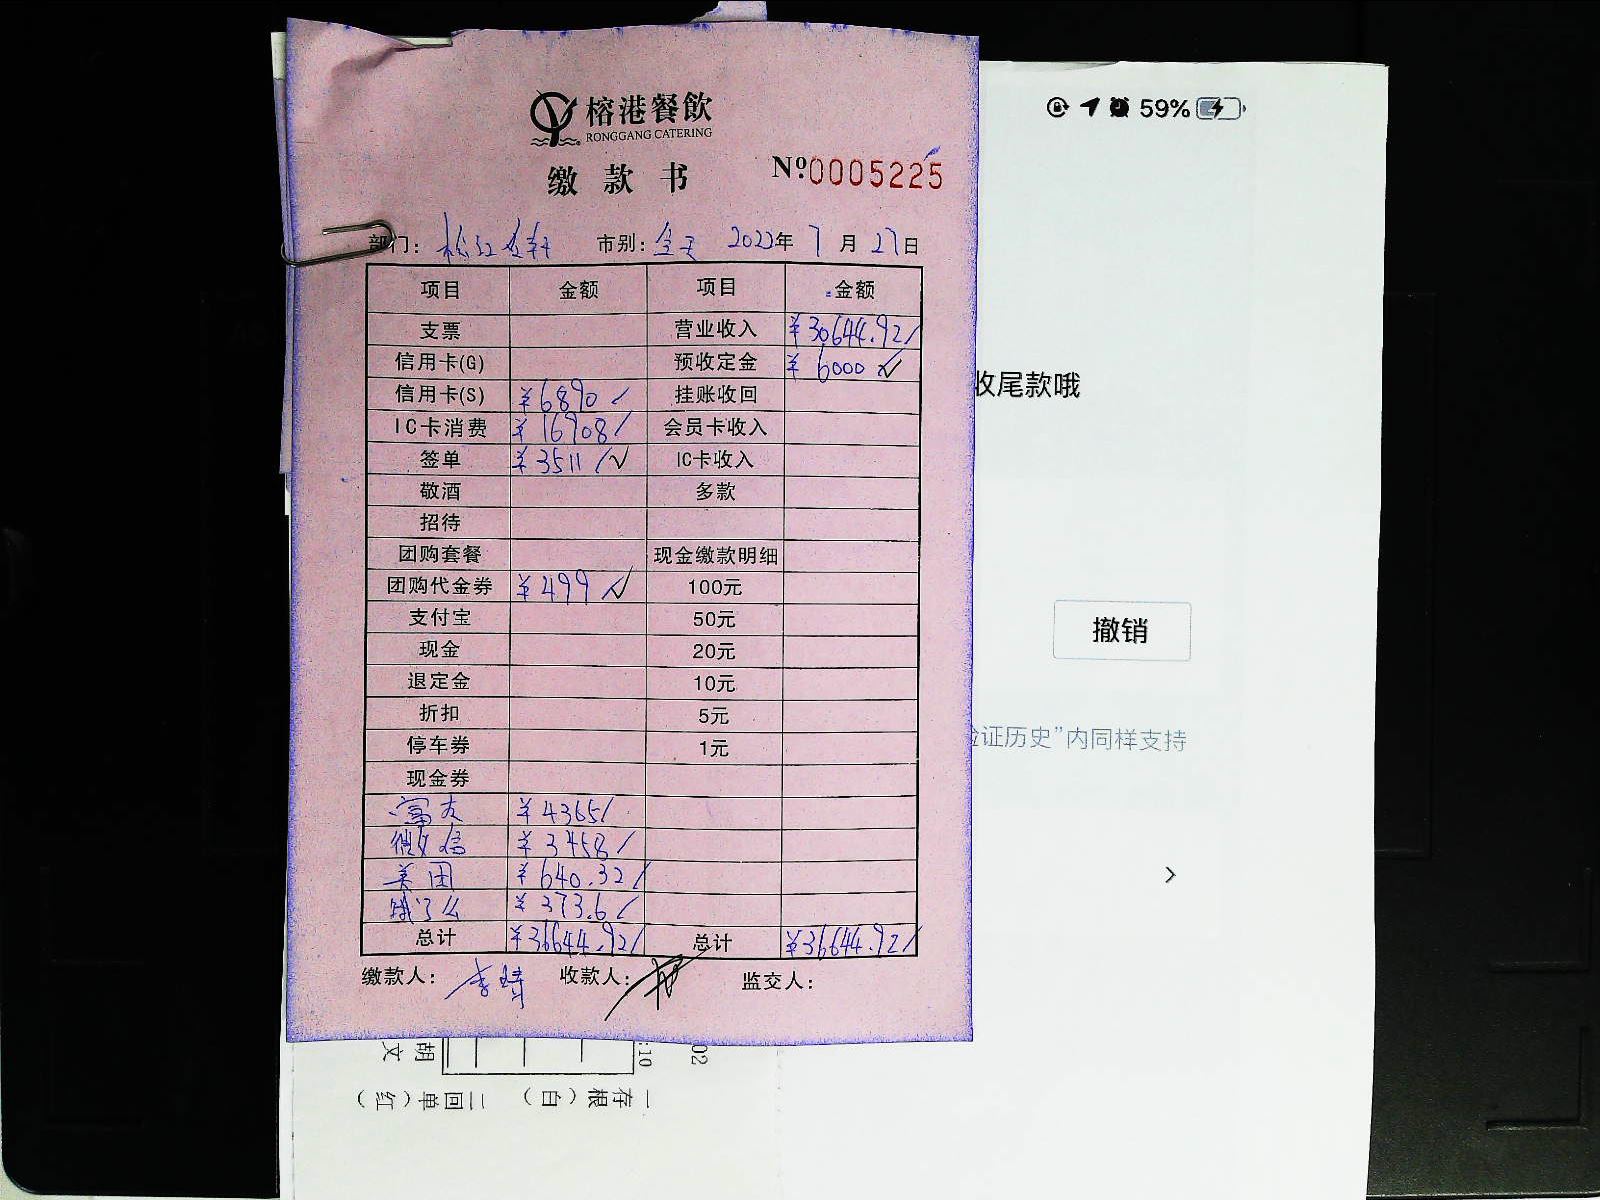 榕港餐飲
RONGGANG CATERING
缴款书 Nº0005225
部门: 松江名轩 市别: 全天 2022年 7月 27日
项目 金额 项目 金额
支票 营业收入 ¥30644.92
信用卡(G) 预收定金 ¥6000
信用卡(S) ¥6890 挂账收回
IC卡消费 ¥16908 会员卡收入
签单 ¥3511 IC卡收入
敬酒 多款
招待
团购套餐 现金缴款明细
团购代金券 ¥499 100元
支付宝 50元
现金 20元
退定金 10元
折扣 5元
停车券 1元
现金券
富友 ¥4365
微信 ¥3458
美团 ¥640.32
饿了么 ¥373.6
总计 ¥36644.92 总计 ¥36644.92
缴款人: 李 收款人: 监交人:
59%
收尾款哦
撤销
证历史”内同样支持
胡文
:10
02
一存根(白) 二回单(红)